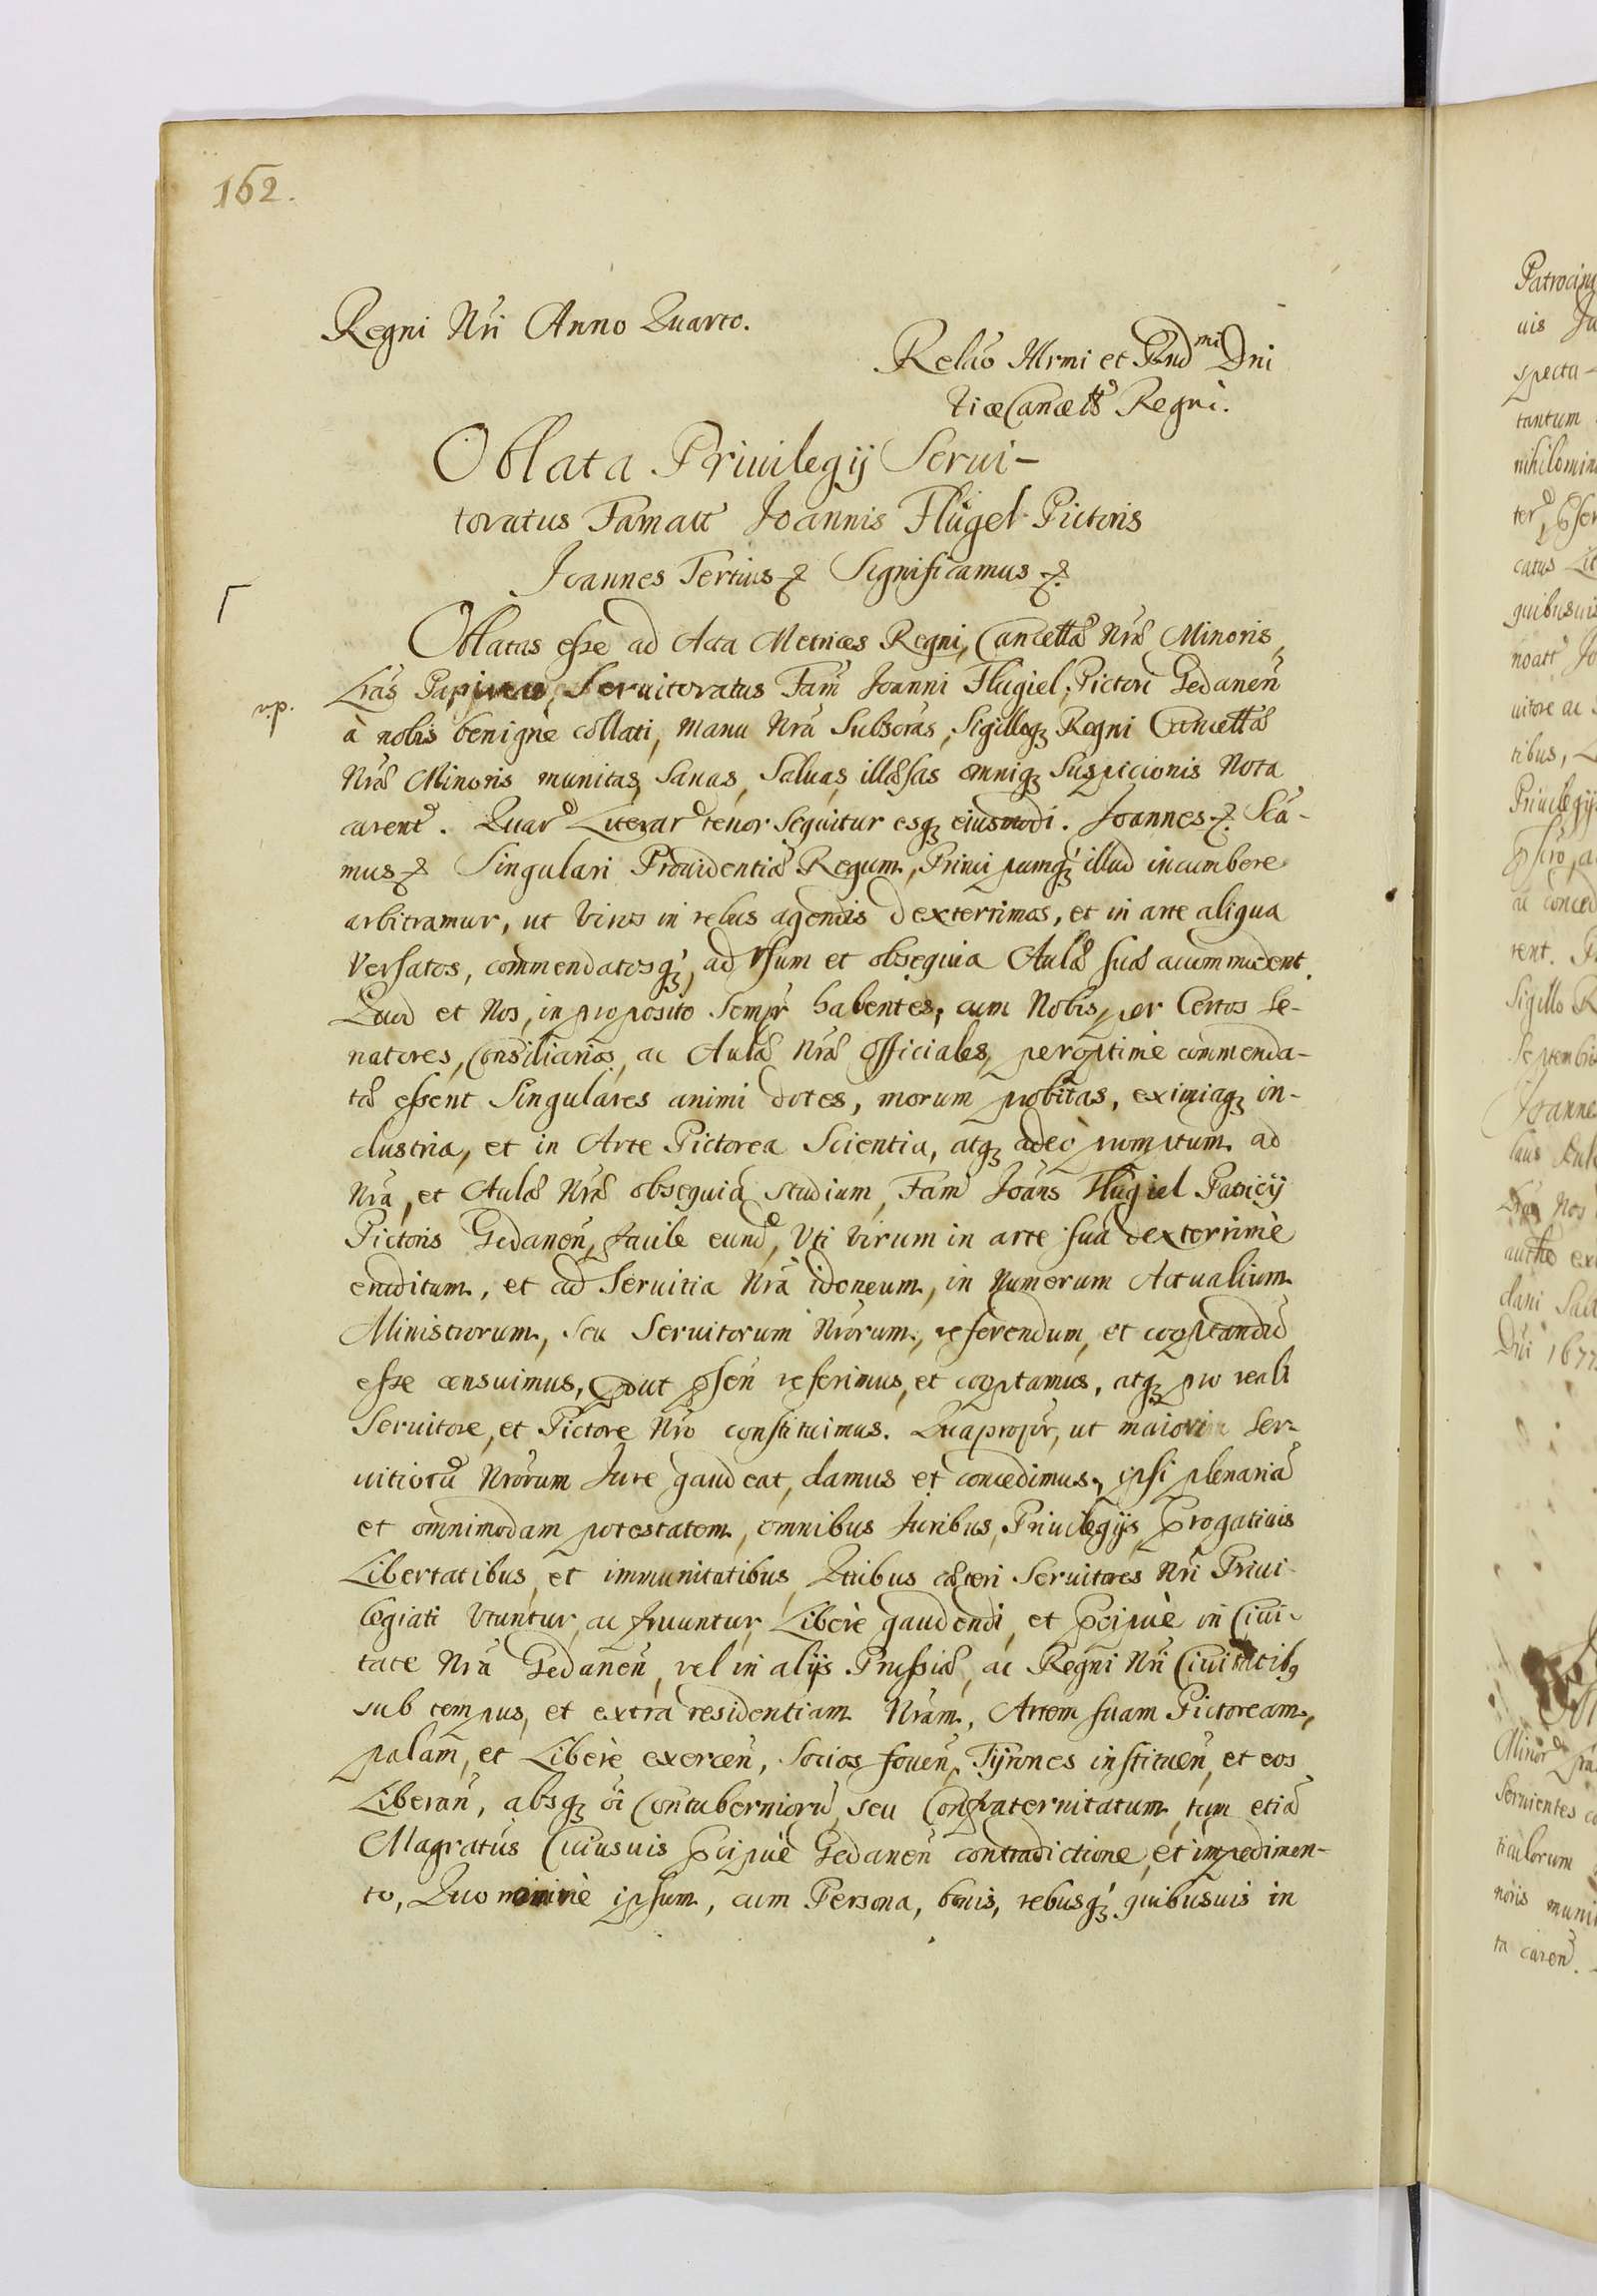 162.
Regni Nri Anno Quarto.
Relao Illrmi et Rnd mi Dni
Vice Cancell Regni.
Oblata Priuilegij Serui-
toratus Famati Joannis Flügel Pictoris
Joannes Tertius & Significamus &.
Oblatas esse ad Acta Metrices Regni, Cancellæ Nræ Minoris,
Lrás Papireas, Seruitoratus Fam Joanni Flügiel, Pictori Gedanen̄
v.p.
à nobis benignè collati, manu Nrâ Subscras, Sigilloq Regni Cancellæ
Nræ Minoris munitas, Sanas, Saluas, illæsas omniq Suspicionis Nota
carent. Quar Literar tenor Sequitur esq eiusmodi. Joannes &. Sīcā-
mus & Singulari Prouidentiæ Regum, Principumq illud incumbere
arbitramur, ut Viros in rebus agendis dexterrimos, et in arte aliqua
Versatos, commendatosq, ad Vsum et obsequia Aulæ suæ accommodent.
Quod et Nos, in proposito Sempr habentes, cum Nobis, per Certos Se-
natores, Consiliarios, ac Aulæ Nræ Officiales, peroptimè commenda-
tæ essent Singulares animi dotes, morum probitas, eximiaq in-
dustria, et in Arte Pictorea Scientia, atq adeo promptum ad
Nra, et Aulæ Nræ obsequia studium, Fam Joans Flügiel Patricij
Pictoris Gedanen̄, facile eund, Vti Virum in arte sua dexterrimè
eruditum, et ad Seruitia Nra idoneum, in Numerum Actualium
Ministrorum, seu Seruitorum Nrorum, referendum, et cooptandū
esse censuimus, Prout psen̄ referimus, et cooptamus, atq pro reali
Seruitore, et Pictore Nro constituimus. Quapropr, ut maiori Ser-
uitiorū Nrorum Jure gaudeat, damus et concedimus, ipsi plenariā
et omnimodam potestatem, omnibus Juribus, Priuilegijs, Progatiuis
Libertatibus, et immunitatibus, Quibus cæteri Seruitores Nri Priui-
legiati Vtuntur, ac fruuntur, Libere gaudendi, et Pcipuè in Ciui-
tate Nra Gedanen̄, vel in alijs Prussiæ, ac Regni Nri Ciuitatib9
sub tempus, et extra residentiam Nram, Artem suam Pictoream,
palam, et Liberè exercen̄, Socios fouen̄, Tyrones instituen̄, et eos
Liberan̄, absq oi Contuberniorū, seu Confraternitatum, tum etiā
Magratus Cuiusuis Pcipuè Gedanen̄ contradictione, et impedimen-
to, Quo minimè ipsum, cum Persona, bonis, rebusq quibusuis in